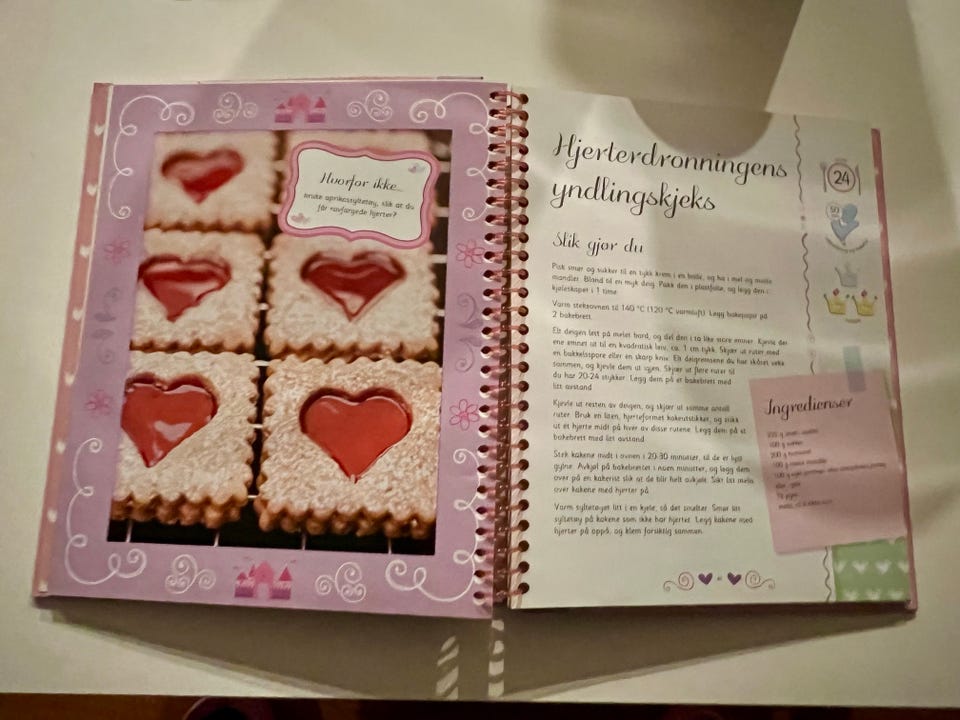 Hvorfor ikke...
bruke aprikossyltetøy, slik at du
får ravfargede hjerter?
Hjerterdronningens
yndlingskjeks
24
50
Slik gjør du
Pisk smør og sukker til en tykk krem i en bolle, og ha i mel og malte
mandler. Bland til en myk deig. Pakk den i plastfolie, og legg den i
kjøleskapet i 1 time.
Varm stekeovnen til 140 °C (120 °C varmluft). Legg bakepapir på
2 bakebrett.
Elt deigen lett på melet bord, og del den i to like store emner. Kjevle det
ene emnet ut til en kvadratisk leiv, ca. 1 cm tykk. Skjær ut ruter med
en bakkelsspore eller en skarp kniv. Elt deigrestene du har skåret vekk
sammen, og kjevle dem ut igjen. Skjær ut flere ruter til
du har 20-24 stykker. Legg dem på et bakebrett med
litt avstand.
Kjevle ut resten av deigen, og skjær ut samme antall
ruter. Bruk en liten, hjerteformet kakeutstikker, og stikk
ut et hjerte midt på hver av disse rutene. Legg dem på et
bakebrett med litt avstand.
Stek kakene midt i ovnen i 20-30 minutter, til de er lyst
gylne. Avkjøl på bakebrettet i noen minutter, og legg dem
over på en kakerist slik at de blir helt avkjølt. Sikt litt melis
over kakene med hjerter på.
Varm syltetøyet litt i en kjele, så det smelter. Smør litt
syltetøy på kakene som ikke har hjerter. Legg kakene med
hjerter på oppå, og klem forsiktig sammen.
Ingredienser